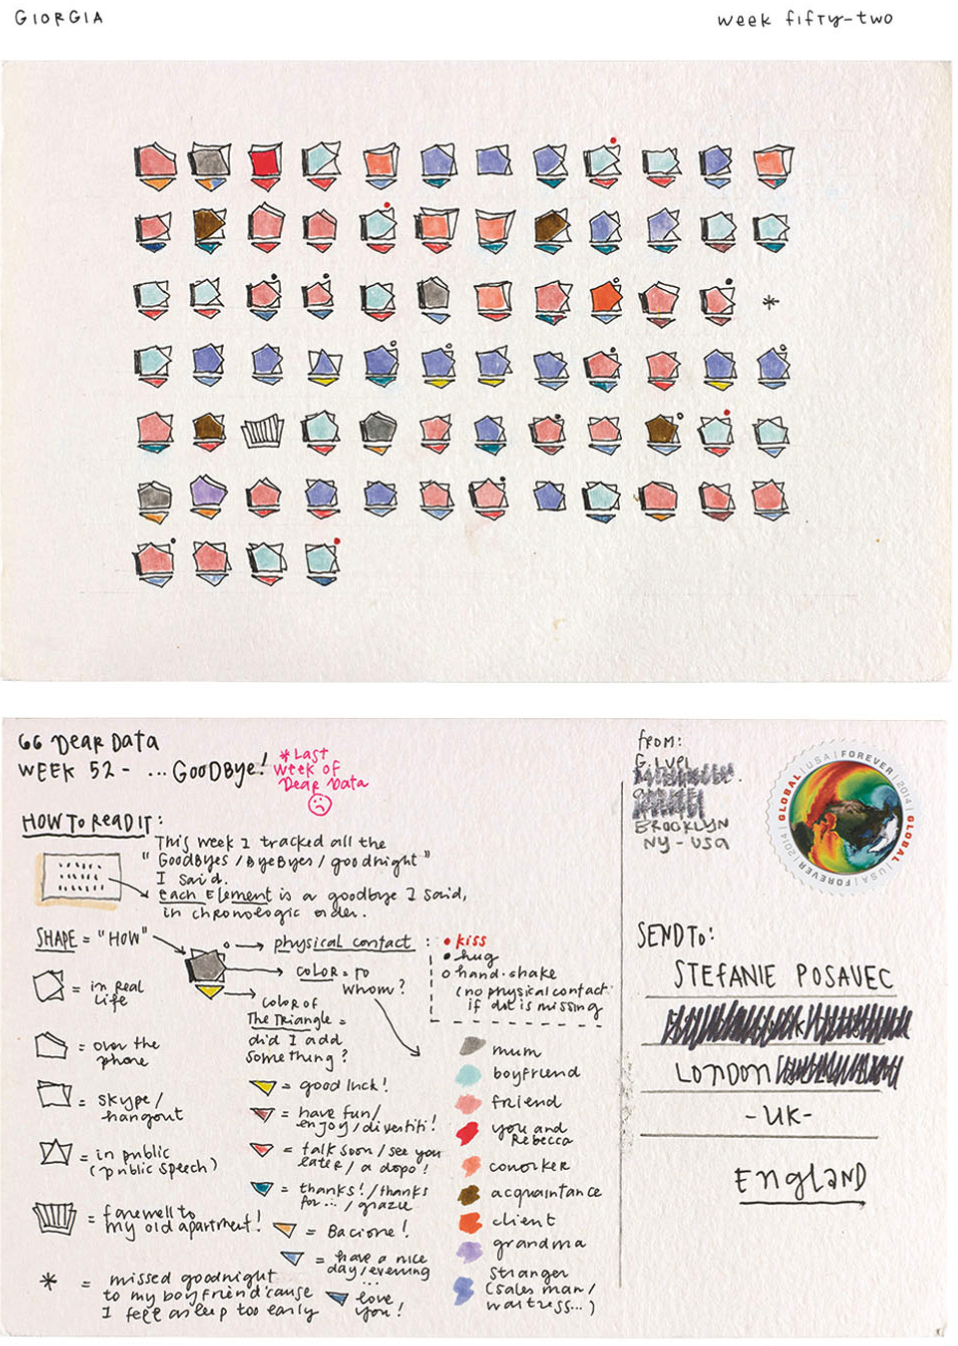 GIORGIA
week fifty-two
*
GG DEAR DATA
WEEK 52 - ... GOODBYE!
* Last
week of
Dear Data
HOW TO READ IT:
This week I tracked all the
"GOODBYES / BYEBYES / goodnight"
I said.
each Element is a goodbye I said,
in chronologic order.
SHAPE = "HOW"
= in real
life
= over the
phone
= skype/
hangout
= in public
(public speech)
= farewell to
my old apartment!
* = missed goodnight
to my boyfriend 'cause
I fell asleep too early
physical contact :
• kiss
• hug
o hand-shake
(no physical contact
if dot is missing
COLOR = TO
WHOM?
COLOR OF
The TRIANGLE =
did I add
something?
= good luck!
= have fun/
enjoy/divertiti!
= talk soon/see you
later/a dopo!
= thanks!/thanks
for.../grazie
= Bacione!
= have a nice
day/evening
...
= love
you!
mum
boyfriend
friend
you and
Rebecca
coworker
acquaintance
client
grandma
Stranger
(sales man/
waitress...)
from:
G. LUPI
BROOKLYN
NY - USA
GLOBAL | USA | FOREVER | 2014 | GLOBAL | USA | FOREVER | 2014 |
SEND TO:
STEFANIE POSAVEC
LONDON
- UK -
ENGLAND